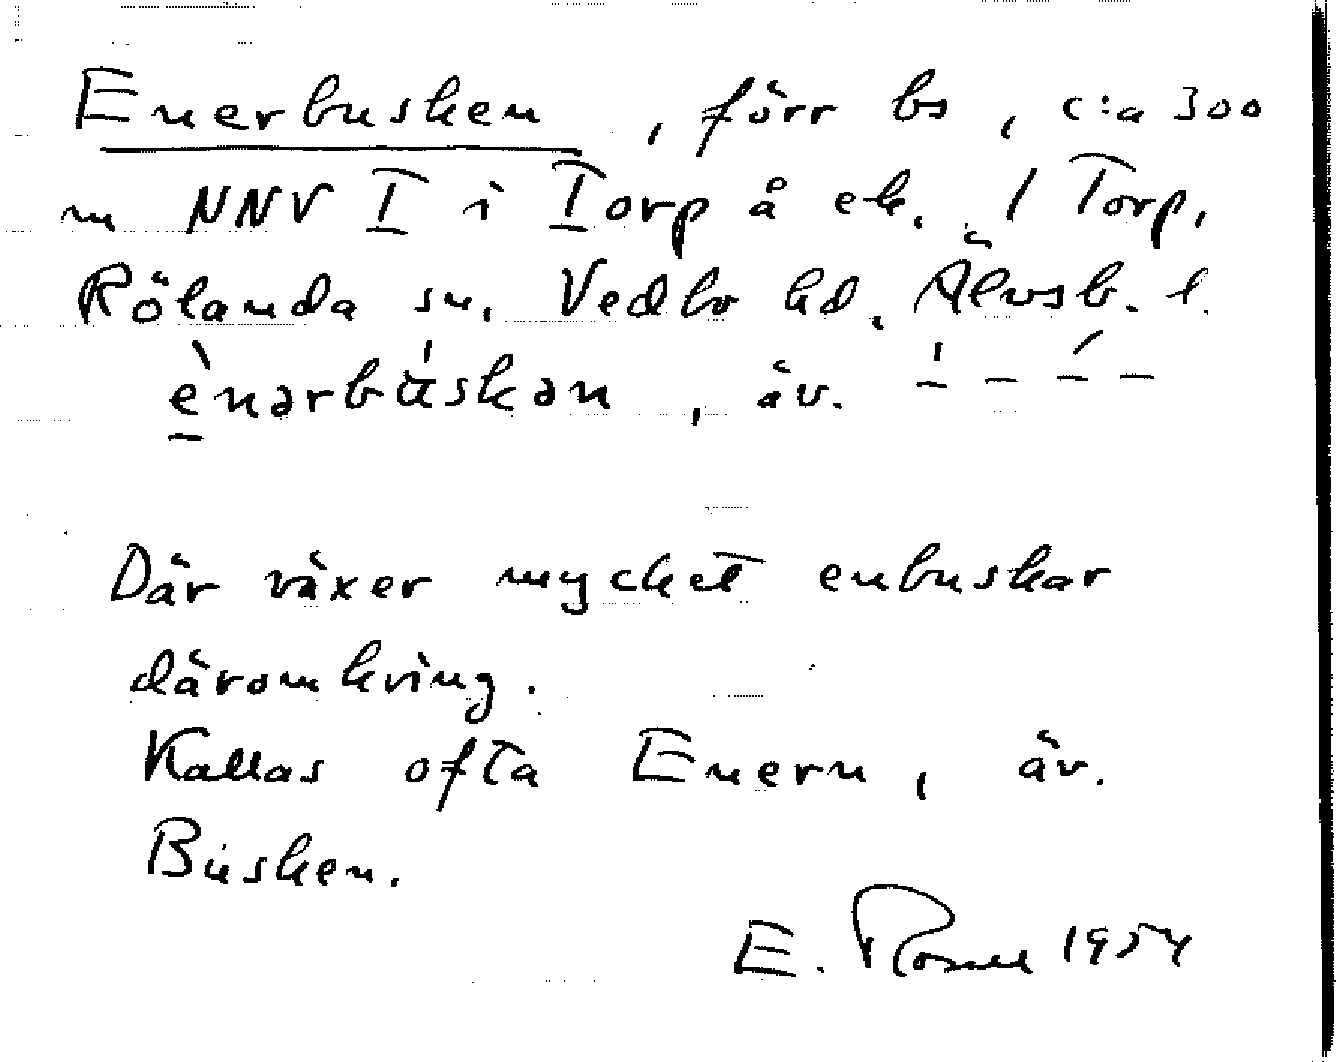 Enerbusken, förr bs, c:a 300
m NNV T i Torp å ek. 1 Torp,
Rölanda sn, Vedbo hd, Älvsb. l.
ènərbúskən, äv.
Där växer mycket enbuskar
däromkring.
Kallas ofta Enern, äv.
Busken.
E. Rosell 1954